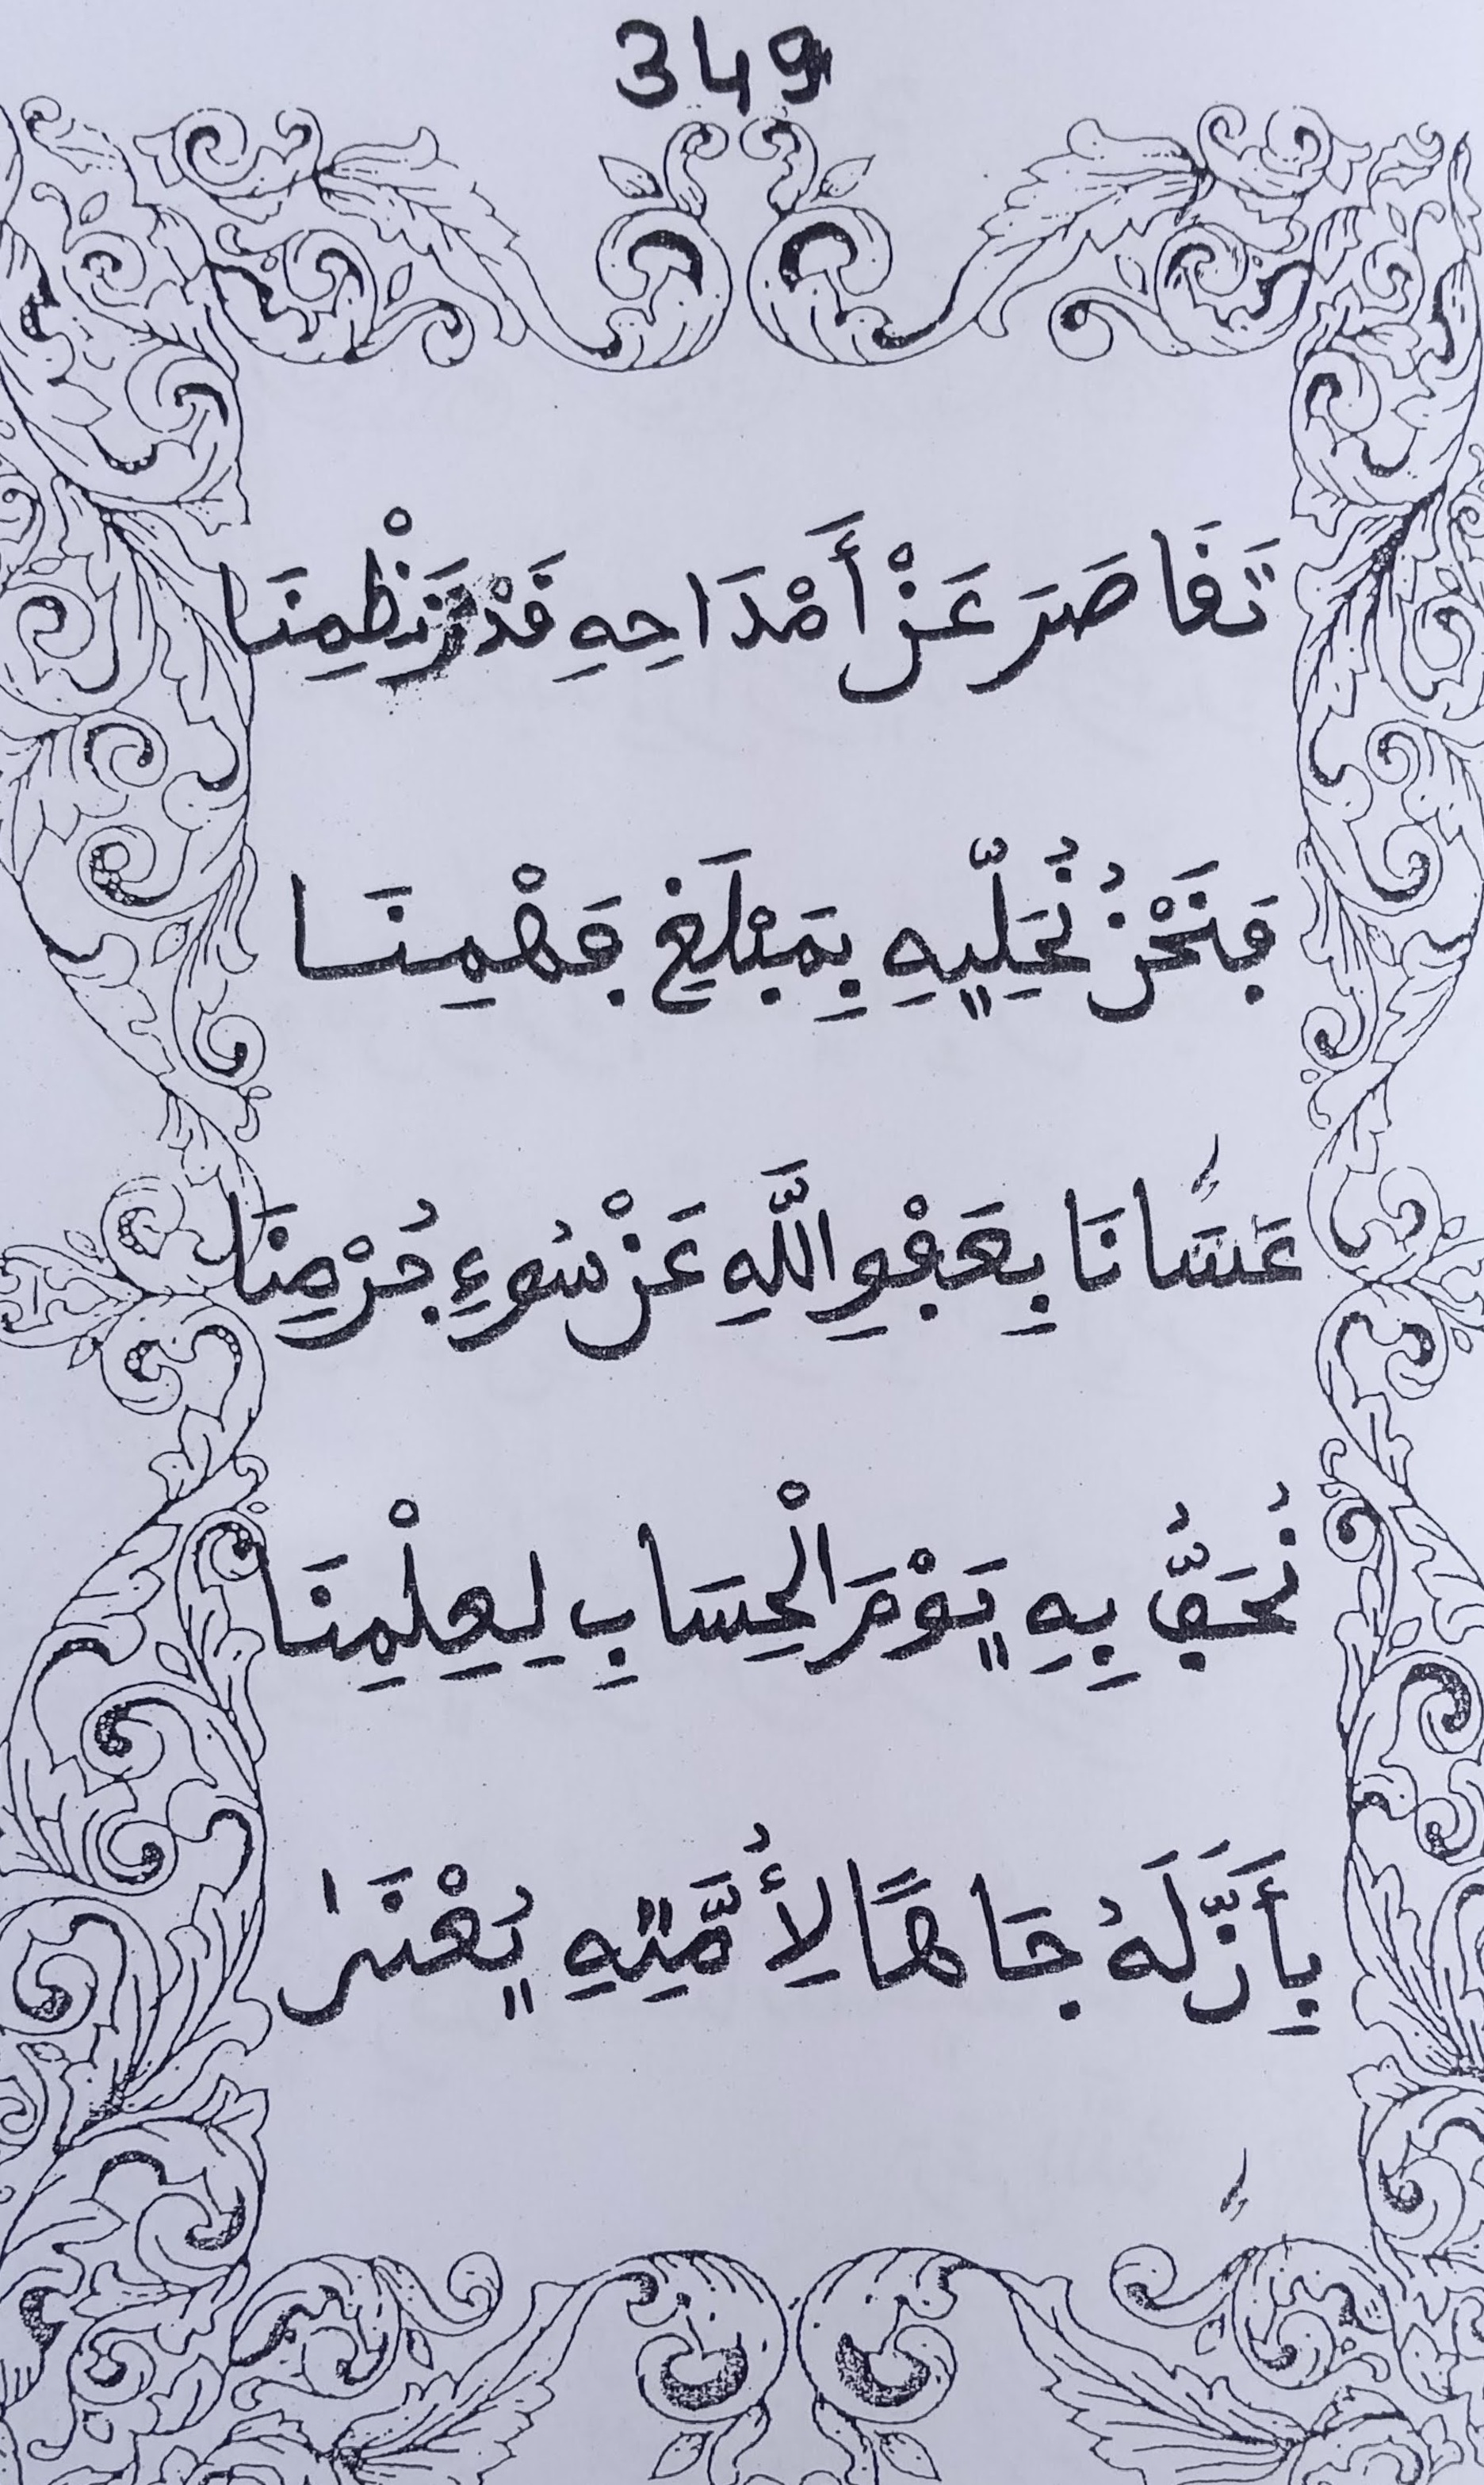 349
تَقَاصَرَ عَنْ أَمْدَاحِهِ قَدْرُ نَظْمِنَا
فَنَحْنُ نُحَلِّيهِ بِمَبْلَغِ فَهْمِنَا
عَسَانَا بِعَفْوِ اللَّهِ عَنْ سُوءِ جُرْمِنَا
نُحَفُّ بِهِ يَوْمَ الْحِسَابِ لِعِلْمِنَا
بِأَنَّ لَهُ جَاهًا لِأُمَّتِهِ يُعْنَى